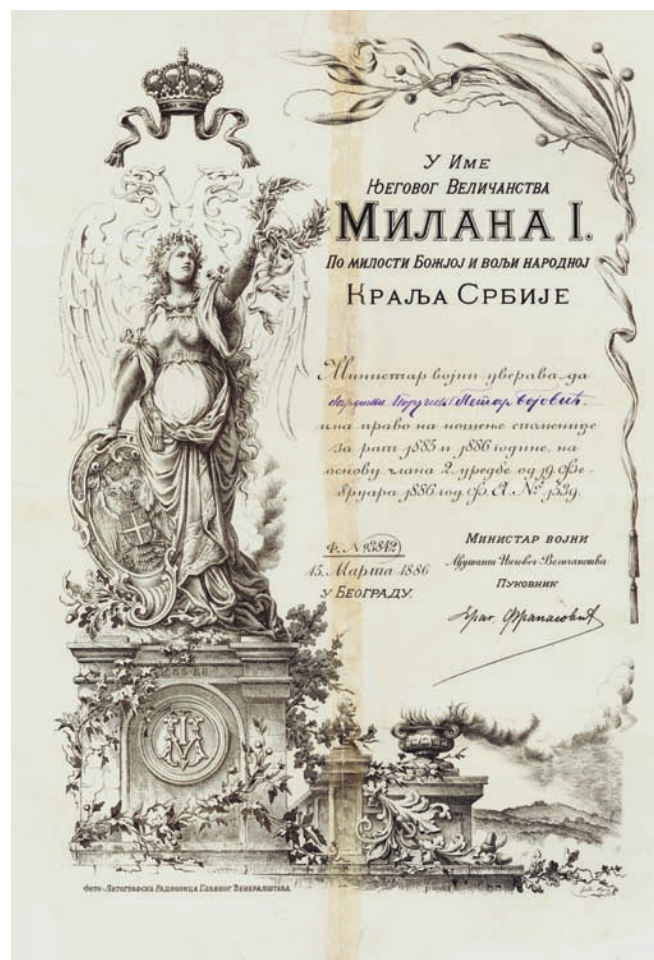 У Име
Његовог Величанства
МИЛАНА I.
По милости Божјој и вољи народној
Краља Србије
Министар војни уверава да
Петар Бојовић
има право на ношење споменице
за рат 1885 и 1886 године, на
основу члана 2 уредбе од 19 Фе-
бруара 1886 год. Ф. А. № 1339.
Ф. № 93842
15. Марта 1886
у Београду.
Министар војни
Ађутант Његовог Величанства
Пуковник
1885-86
Фото-Литографска Радионица Главног Ђенералштаба